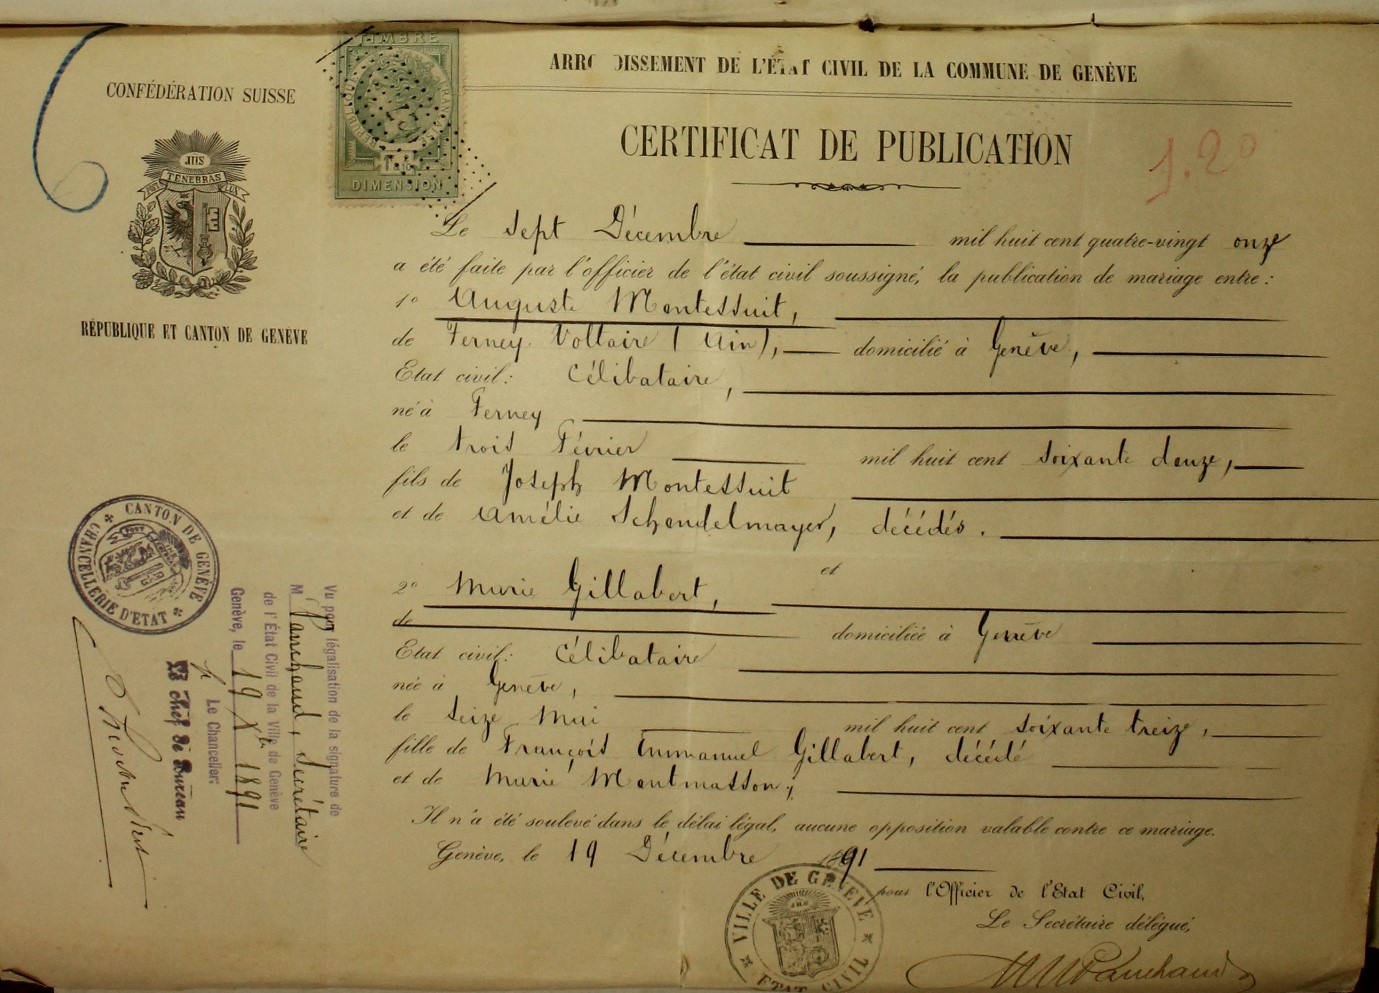 ARRO DISSEMENT DE L'ÉTAT CIVIL DE LA COMMUNE DE GENÈVE
CONFÉDÉRATION SUISSE
TIMBRE
DIMENSION
CERTIFICAT DE PUBLICATION
1.20
TENEBRAS
LUX
RÉPUBLIQUE ET CANTON DE GENÈVE
Le sept Décembre mil huit cent quatre-vingt onze
a été faite par l'officier de l'état civil soussigné, la publication de mariage entre:
1º Auguste Montessuit,
de Ferney Voltaire (Ain), domicilié à Genève,
Etat civil: Célibataire,
né à Ferney
le trois Février mil huit cent soixante douze,
fils de Joseph Montessuit
et de Amélie Schendelmayer, décédés.
et
2º Marie Gillabert,
de domiciliée à Genève
Etat civil: Célibataire
née à Genève,
le seize Mai mil huit cent soixante treize,
fille de François Emmanuel Gillabert, décédé
et de Marie Montmasson,
Il n'a été soulevé dans le délai légal, aucune opposition valable contre ce mariage.
Genève, le 19 Décembre 1891
pour l'Officier de l'Etat Civil,
Le Secrétaire délégué,
Panchaud
VILLE DE GENÈVE
ETAT CIVIL
CANTON DE GENÈVE
CHANCELLERIE D'ETAT
Vu pour légalisation de la signature de
M Panchaud, Secrétaire
de l'État Civil de la Ville de Genève
Genève, le 19 Xbre 1891
p. Le Chancelier:
Le Chef de Bureau